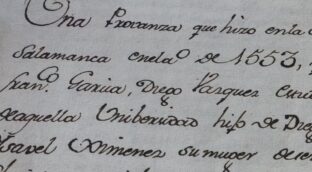 Una Provanza que hizo en la
Salamanca en el aº de 1553,
franº Garcia, Diego Vazquez
deaquella Uniberzidad hijo de Dieg
Ysavel Ximenez su muger